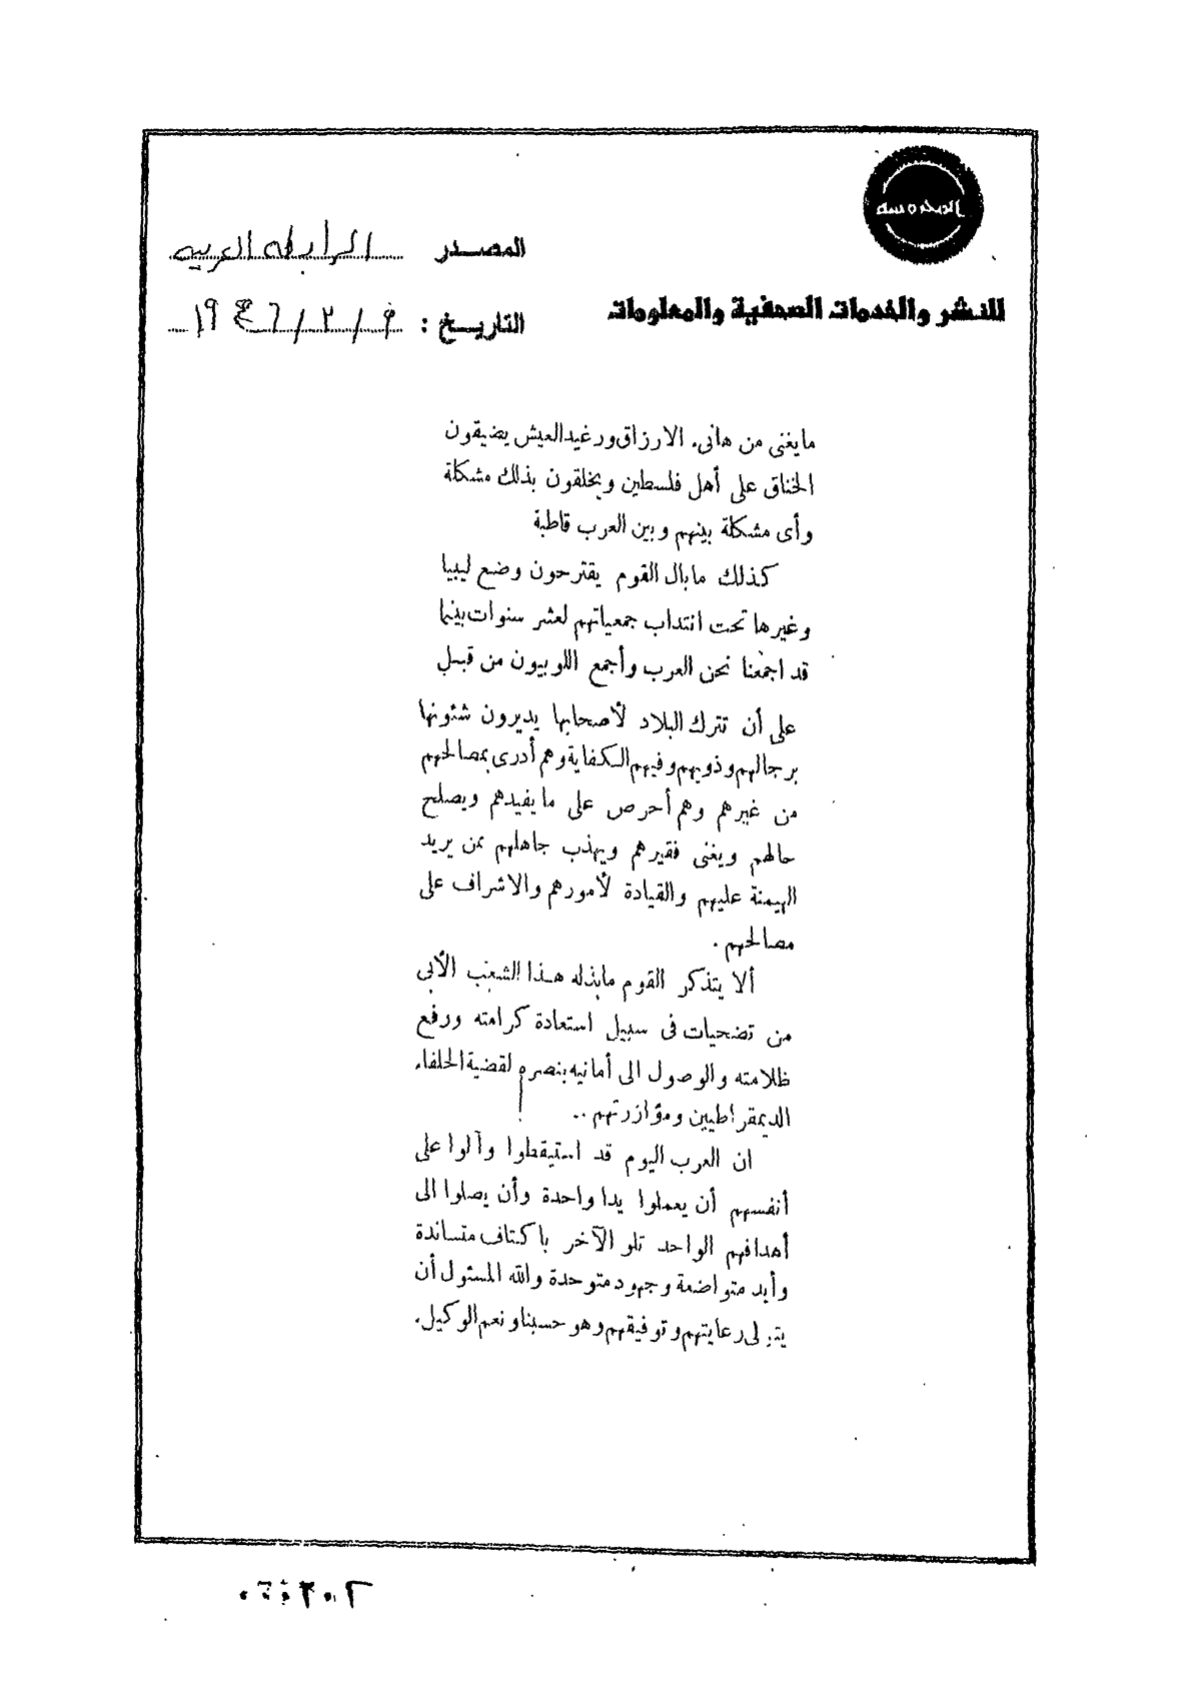 المصدر الرابطه العربيه
للنشر والخدمات الصحفية والمعلومات
التاريخ : ٦ / ٣ / ١٩٤٦
مايغنى من هانىء الارزاق ورغيد العيش يضيقون
الخناق على أهل فلسطين ويخلقون بذلك مشكلة
وأى مشكلة بينهم وبين العرب قاطبة
كذلك مابال القوم يقترحون وضع ليبيا
وغيرها تحت انتداب جمعياتهم لعشر سنوات بينما
قد اجمعنا نحن العرب وأجمع اللوبيون من قبل
على أن تترك البلاد لأصحابها يديرون شئونها
برجالهم وذويهم وفيهم الكفاية وهم أدرى بمصالحهم
من غيرهم وهم أحرص على مايفيدهم ويصلح
حالهم ويغنى فقيرهم ويهذب جاهلهم ممن يريد
الهيمنة عليهم والقيادة لأمورهم والاشراف على
مصالحهم .
ألا يتذكر القوم مابذله هذا الشعب الأبى
من تضحيات فى سبيل استعادة كرامته ورفع
ظلامته والوصول الى أمانيه بنصره لقضية الحلفاء
الديمقراطيين ومؤازرتهم ..
ان العرب اليوم قد استيقظوا وآلوا على
أنفسهم أن يعملوا يدا واحدة وأن يصلوا الى
أهدافهم الواحد تلو الآخر باكتاف متساندة
وأيد متواضعة وجهود متوحدة والله المسئول أن
يتولى رعايتهم وتوفيقهم وهو حسبنا ونعم الوكيل.